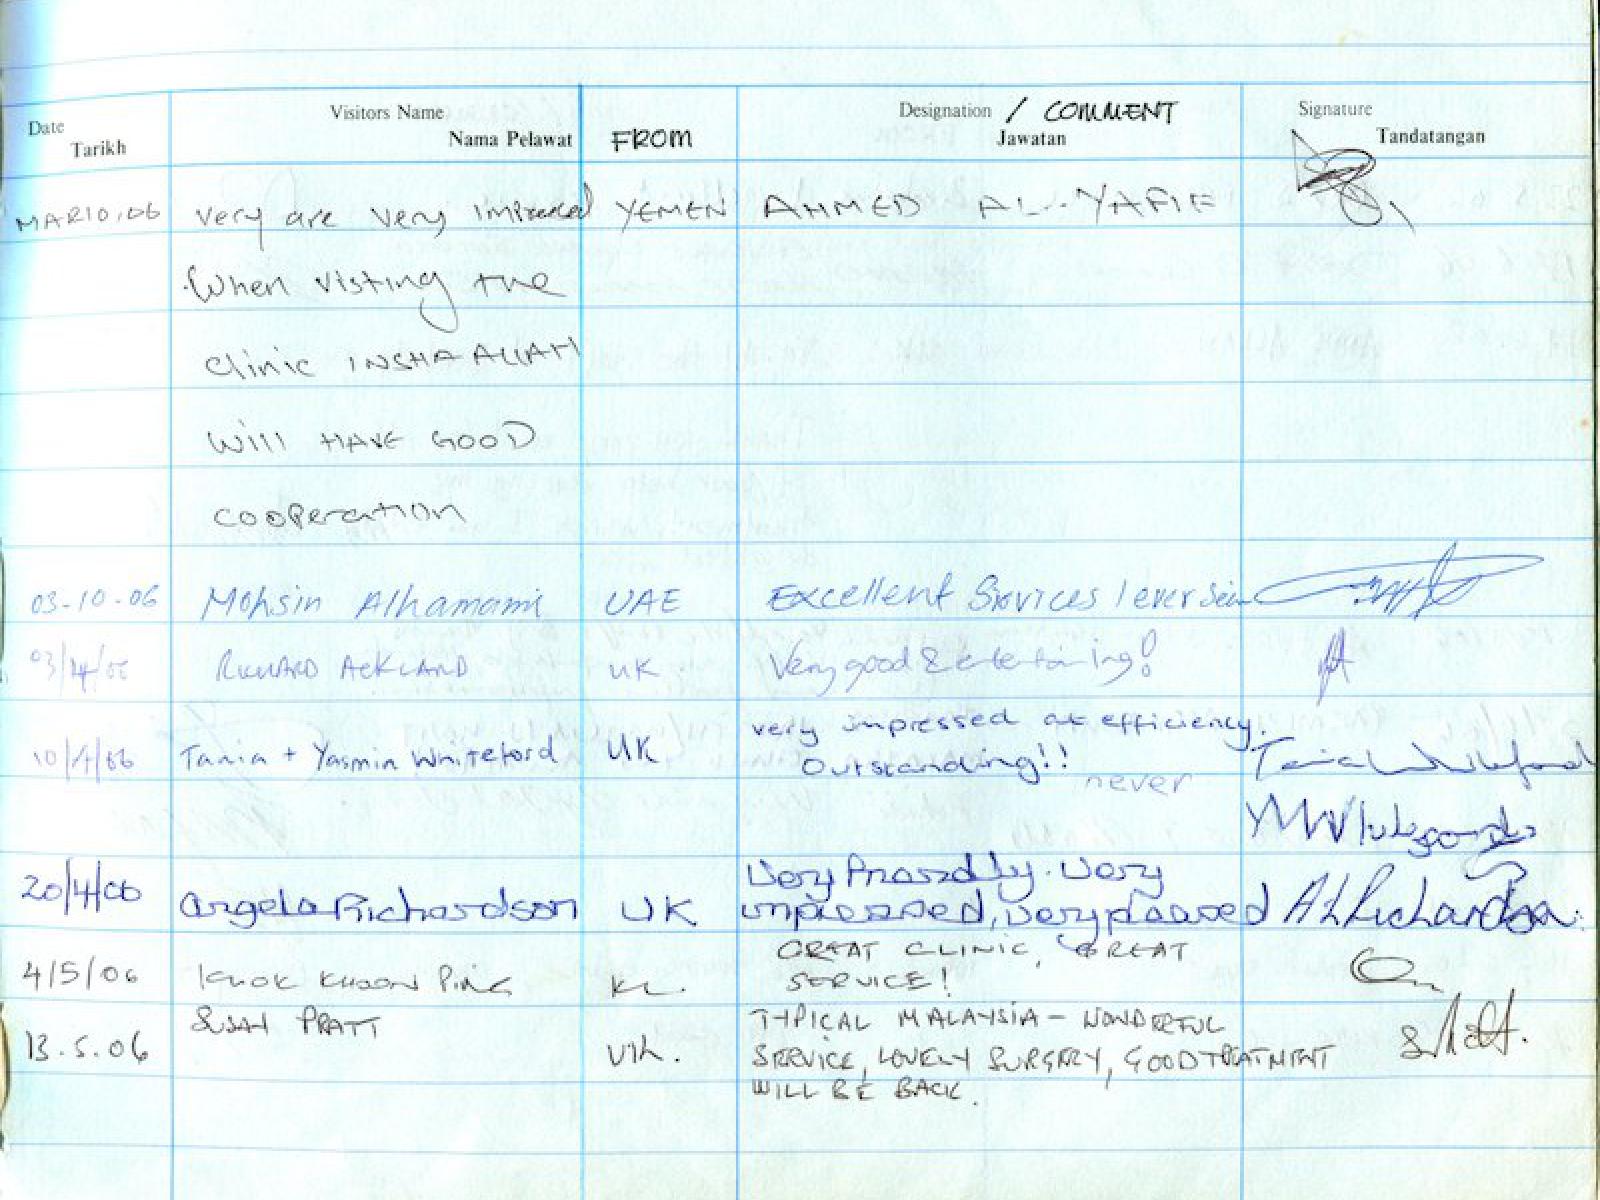 Date Visitors Name Designation / COMMENT Signature
Tarikh Nama Pelawat FROM Jawatan Tandatangan
MAR10,06 very are very impressed YEMEN AHMED AL-YAFIE
When visting the
clinic INSHA ALLAH
will HAVE GOOD
cooperation
03-10-06 Mohsin Alhamami UAE Excellent Services I ever seen
RICHARD ACKLAND UK Very good & entertaining!
very impressed at efficiency.
10/4/06 Tania + Yasmin Whiteford UK Outstanding!!
never
Very friendly. Very
20/4/06 Angela Richardson UK impressed, very pleased A L Richardson
GREAT CLINIC, GREAT
4/5/06 KHOK KHOON PING KL. SERVICE!
SUSAN PRATT TYPICAL MALAYSIA - WONDERFUL
13.5.06 UK. SERVICE, LOVELY SURGERY, GOOD TREATMENT
WILL BE BACK.